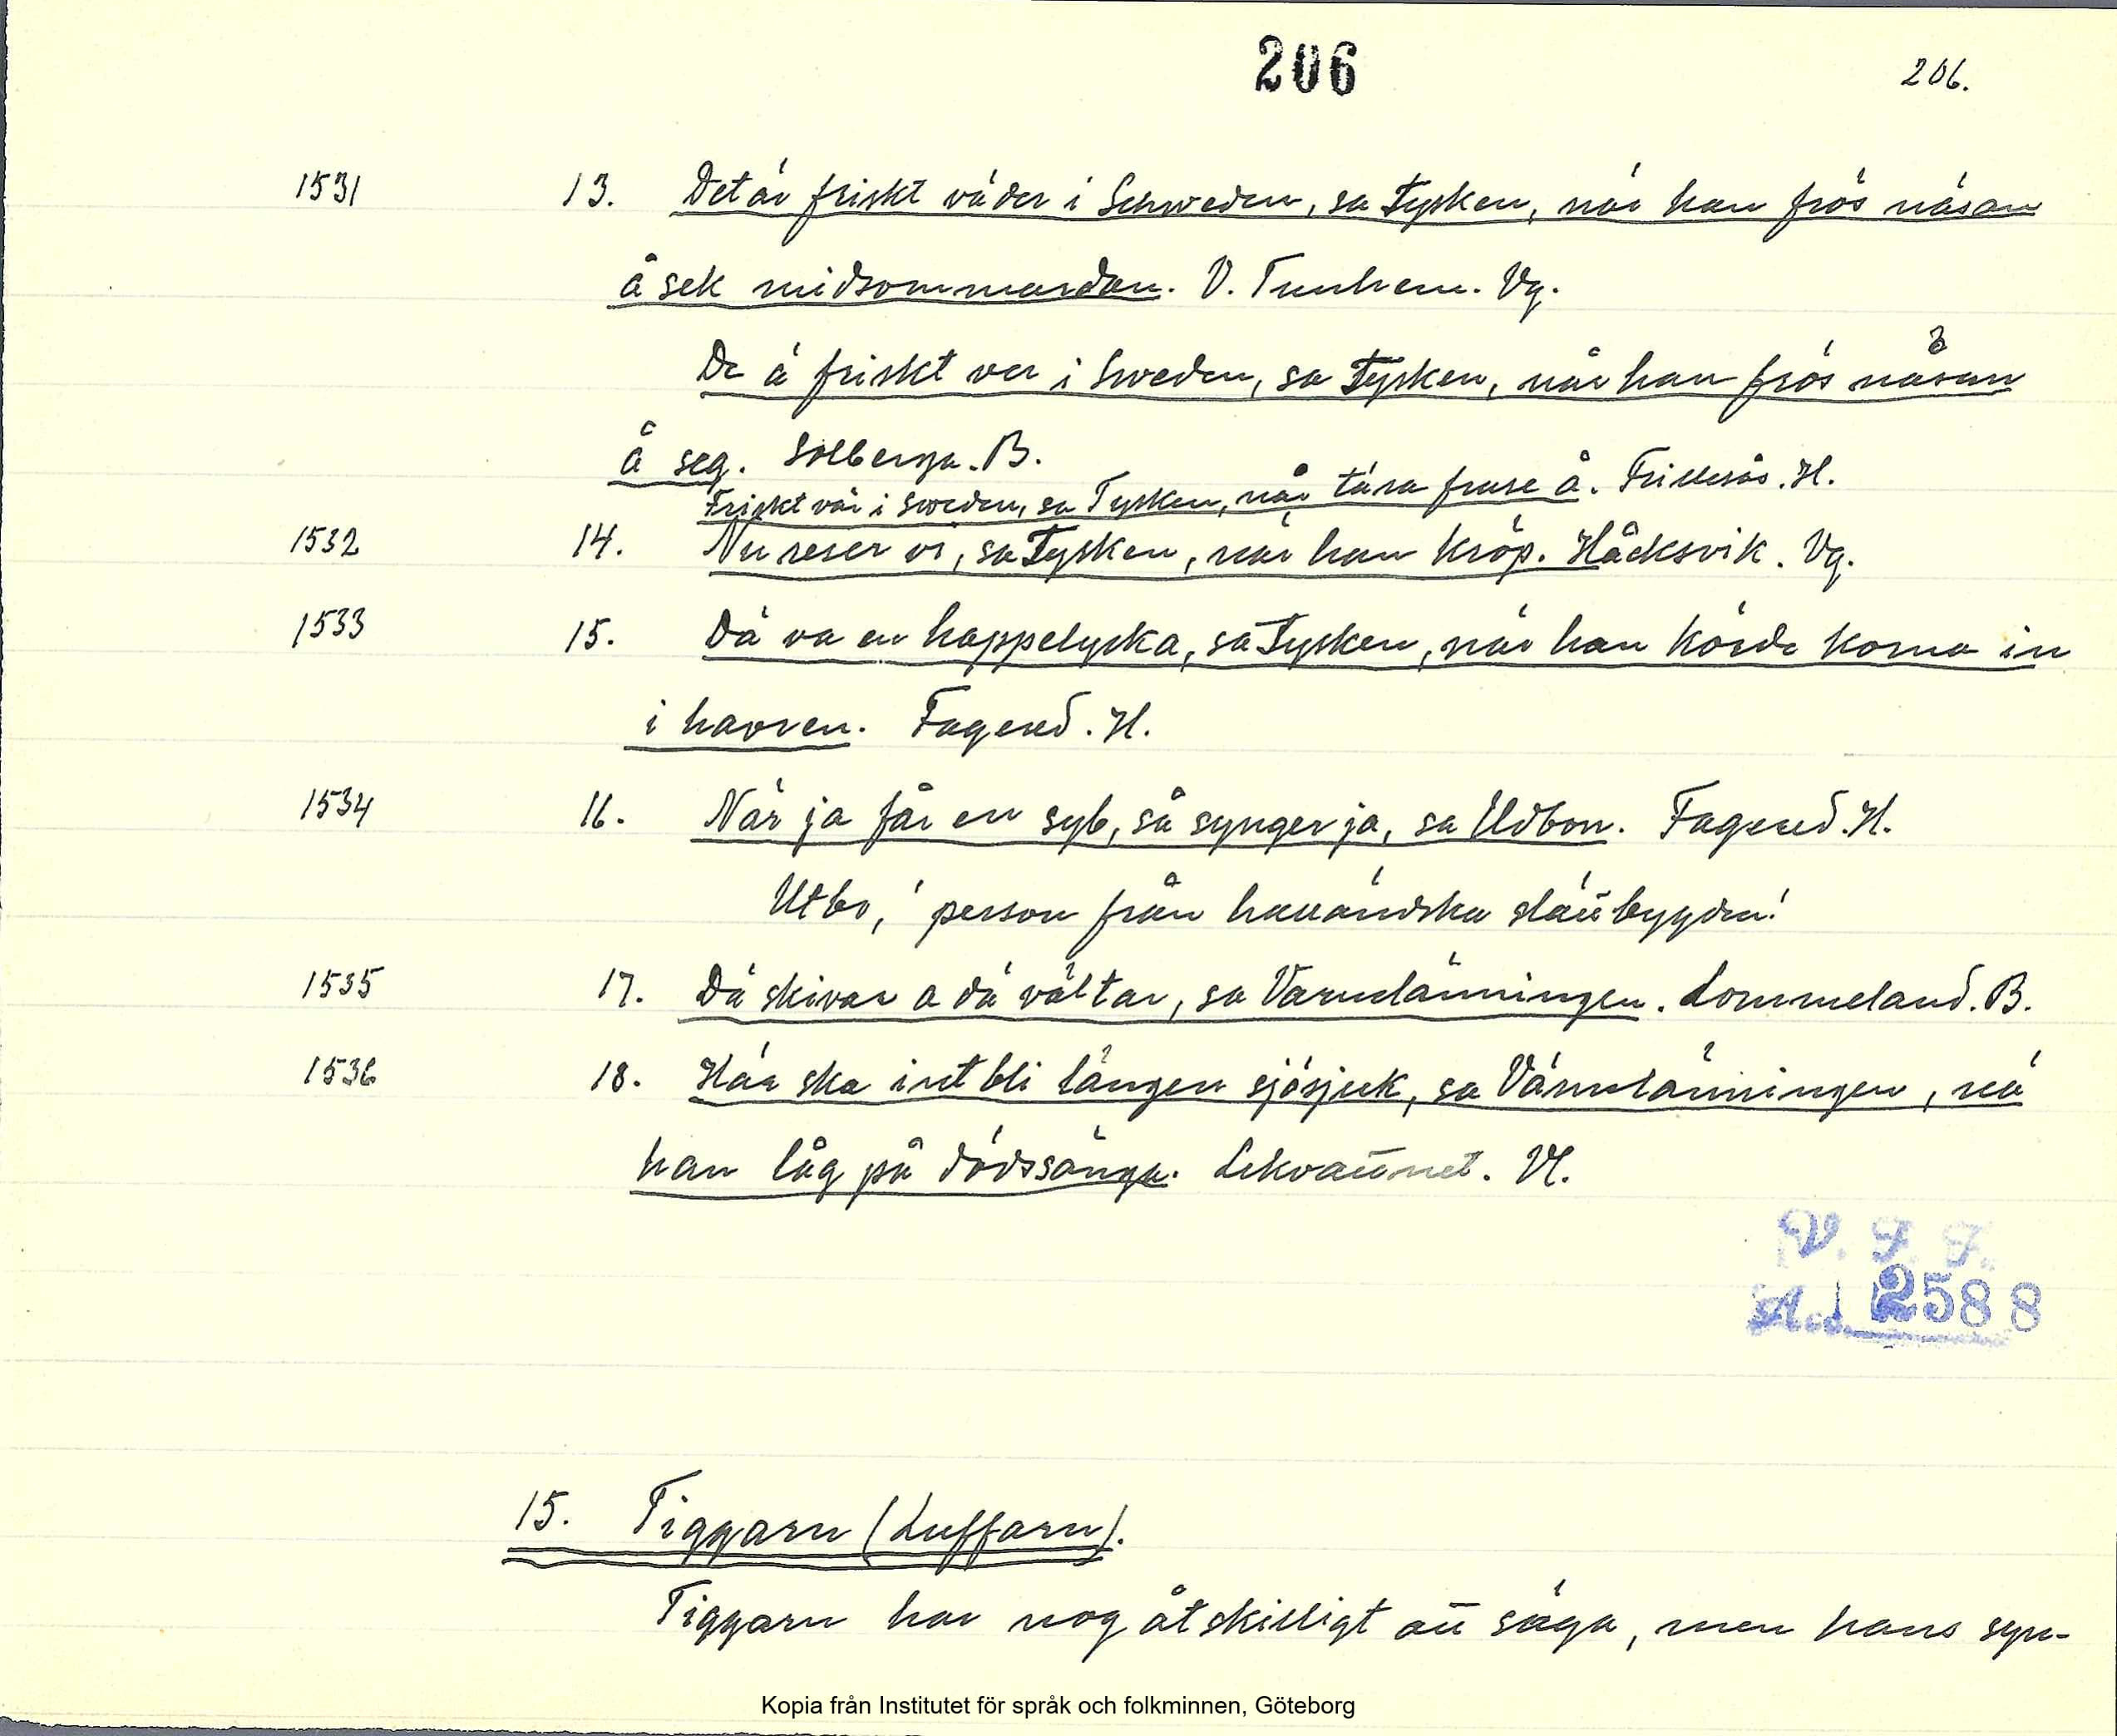 206 206.
1531 13. Det är friskt väder i Schweden, sa Tysken, när han frös näsan
å sek midsommardan. V. Tunhem. Vg.
De ä friskt ver i Sweden, sa Tysken, når han frös
å seg. Solberga. B.
Friskt vär i Sweden, sa Tysken, når tåra fruse å. Frillesås. H.
1532 14. Nu reser vi, sa Tysken, när han kröp. Håcksvik. Vg.
1533 15. Dä va en hoppelycka, sa Tysken, när han körde korna in
i havren. Fagered. H.
1534 16. När ja får en syb, så synger ja, sa Udbon. Fagered. H.
Utbo, 'person från halländska slättbygden'
1535 17. Dä skivar a dä vältar, sa Värmlänningen. Lommeland. B.
1536 18. Här ska int bli längen sjösjuk, sa Värmlänningen, nä
han låg på dödssänga. Lekvattnet. Vl.
V. F. F.
Acc. 2588
15. Tiggarn (Luffarn).
Tiggarn har nog åtskilligt att säga, men hans syn-
Kopia från Institutet för språk och folkminnen, Göteborg